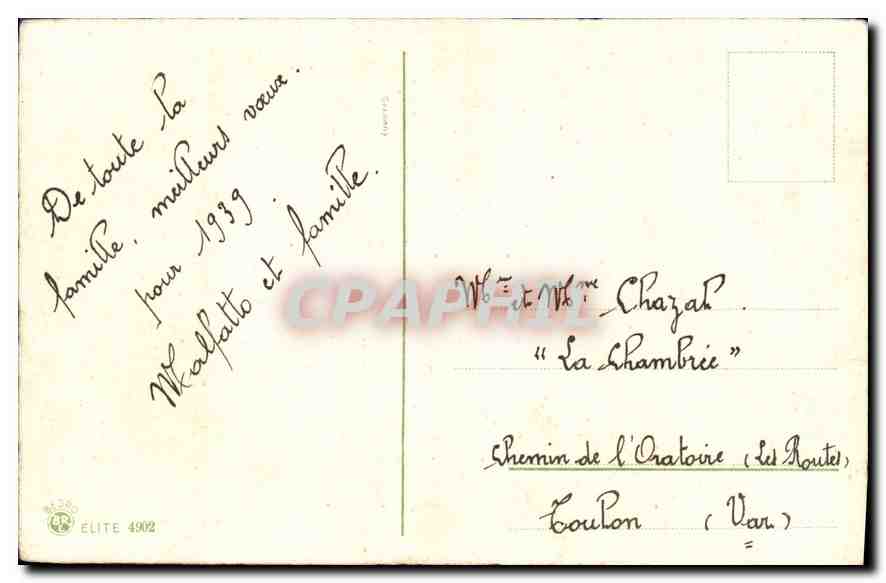 De toute la
famille, meilleurs vœux.
pour 1939.
Malfatto et famille.
CPAPHIL
Mr et Mme Chazal.
"La Chambrée"
Chemin de l'Oratoire (Les Routes)
Toulon (Var)
ELITE 4902